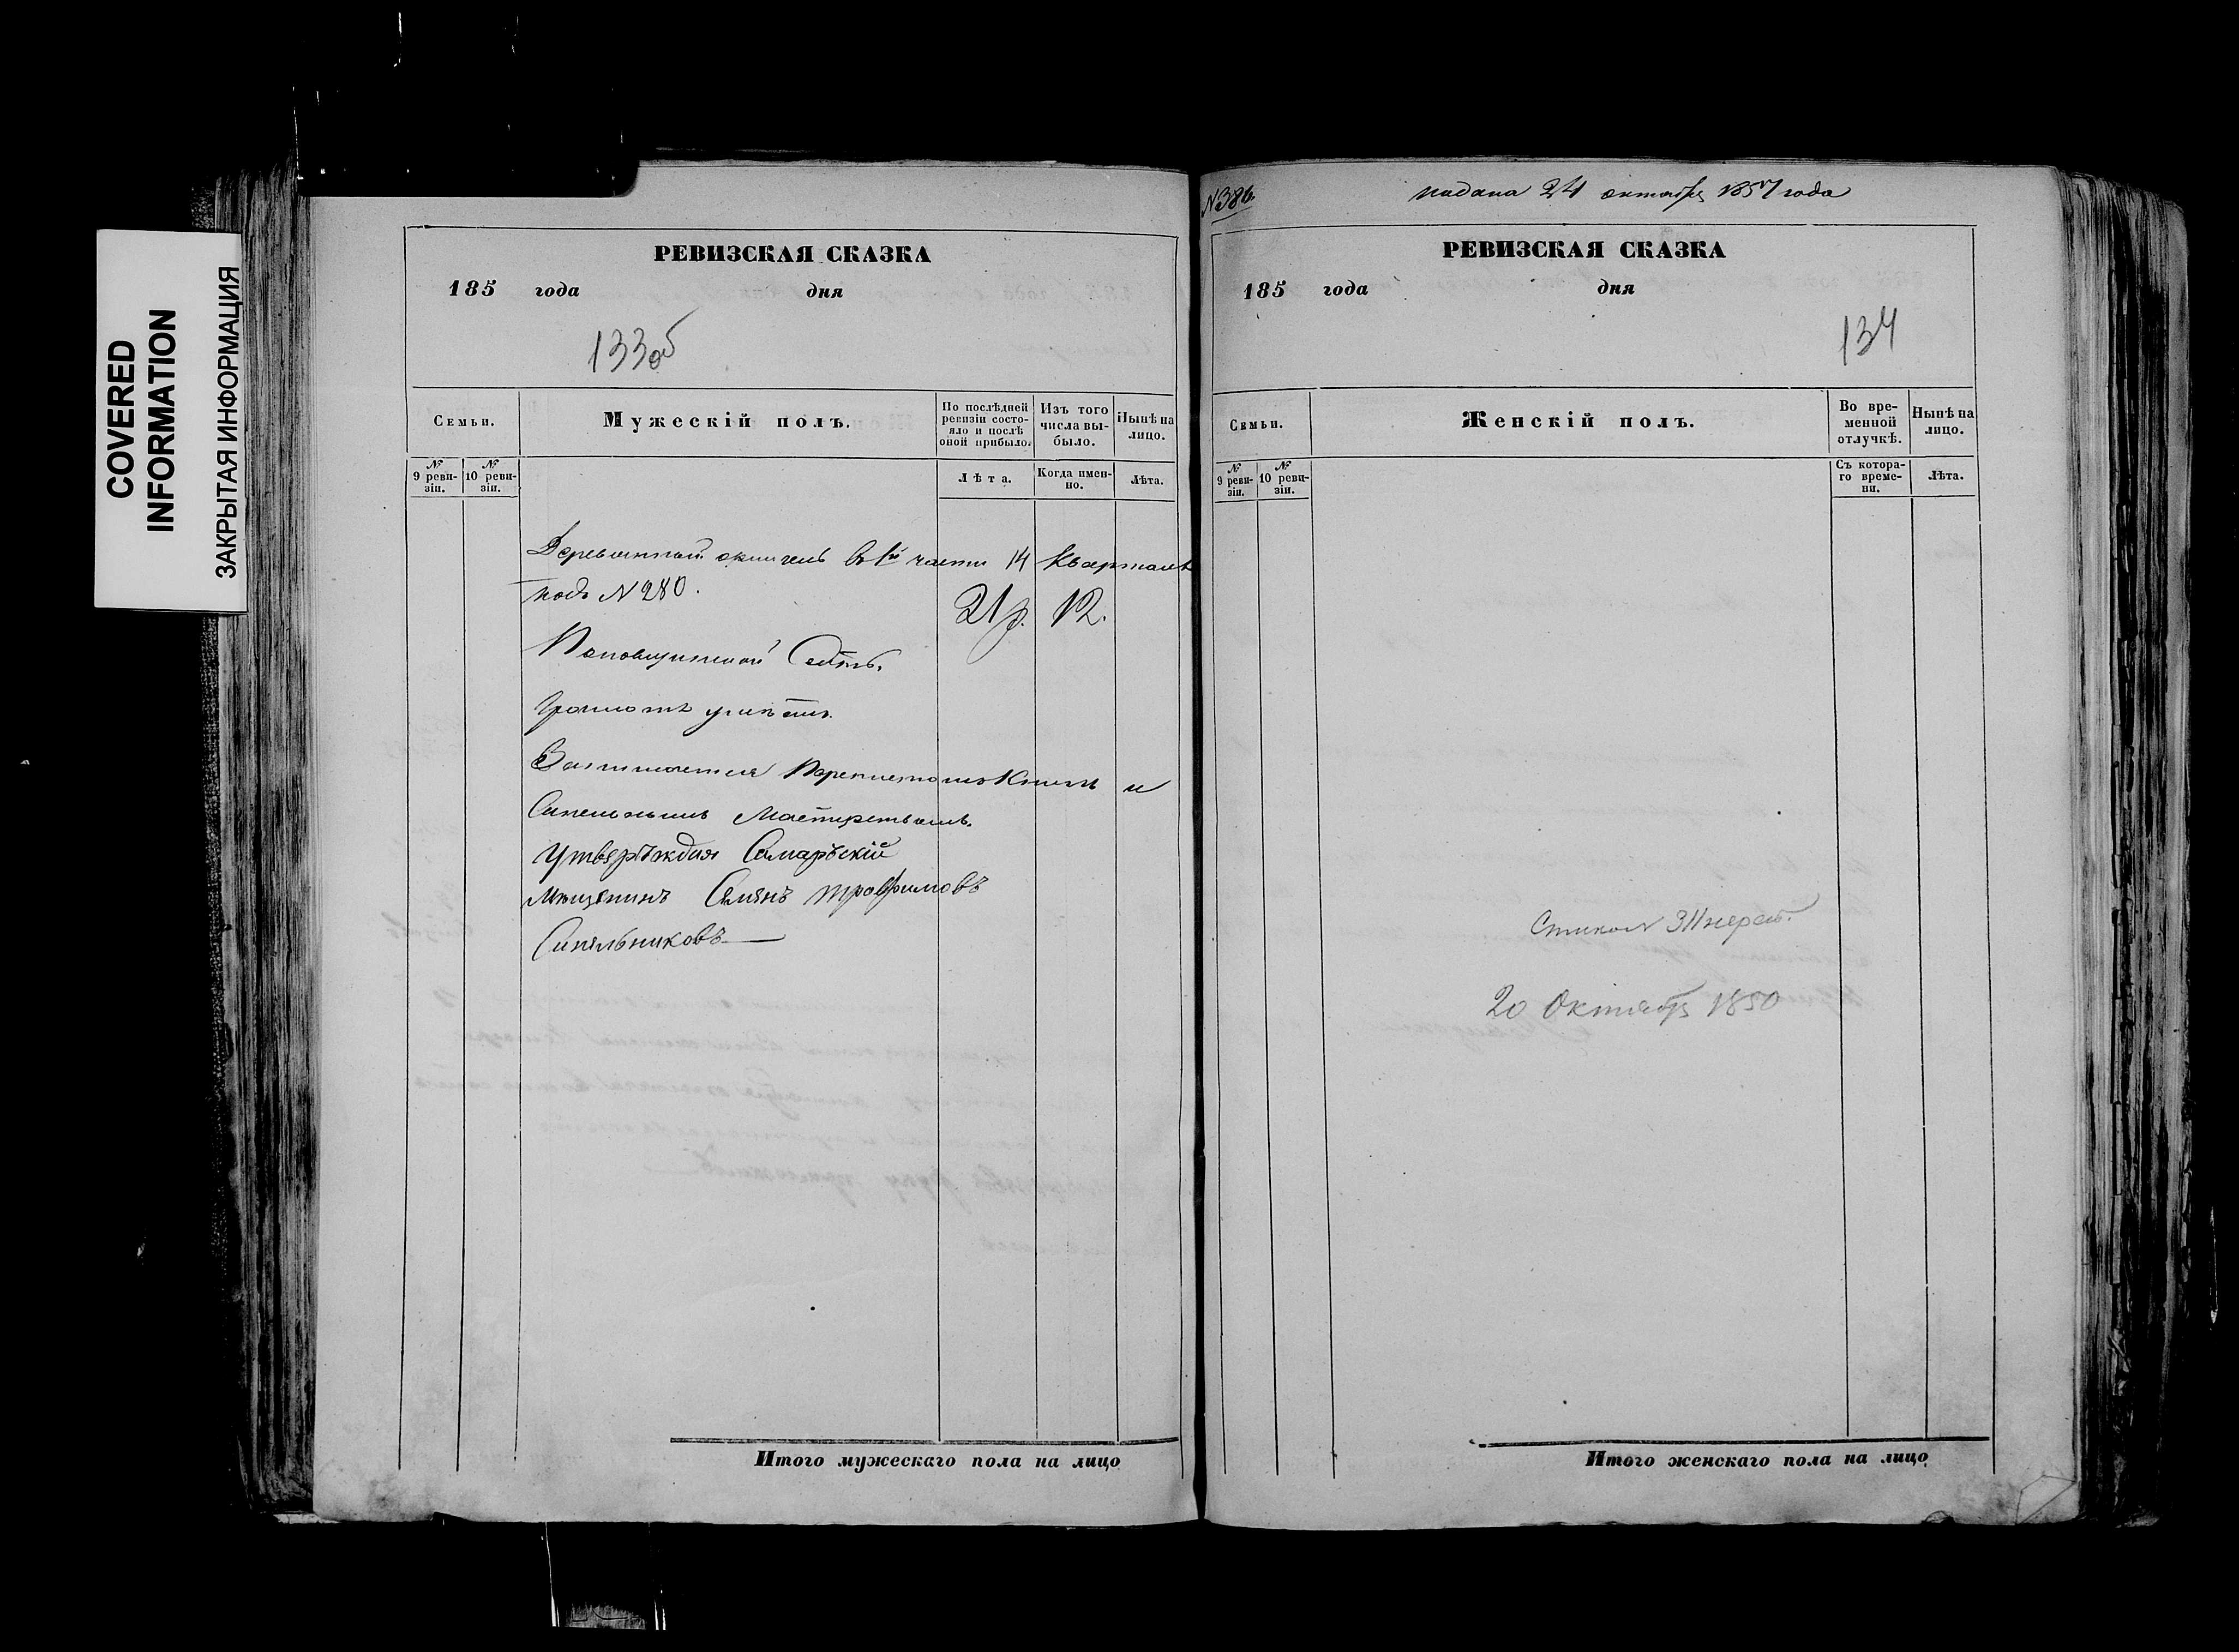 COVERED
INFORMATION
ЗАКРЫТАЯ ИНФОРМАЦИЯ
РЕВИЗСКАЯ СКАЗКА
185 года дня
133об
Семьи.
Мужескій полъ.
По послѣдней ревизіи состояло и послѣ оной прибыло.
Изъ того числа выбыло.
Нынѣ на лицо.
№ 9 ревизіи.
№ 10 ревизіи.
Лѣта.
Когда именно.
Лѣта.
Деревянный в 1й части 14 Квартала
подъ N 280.
21 р. 12.
Грамотѣ
Занимается и
Мастерствомъ.
Утверъждия Самаръскій
Мѣщенинъ Семянъ трофимовъ
Синельниковъ
Итого мужескаго пола на лицо
N 386.
подана 24 октября 1857 года
РЕВИЗСКАЯ СКАЗКА
185 года дня
134
Семьи.
Женскій полъ.
Во временной отлучкѣ.
Нынѣ на лицо.
№ 9 ревизіи.
№ 10 ревизіи.
Съ котораго времени.
Лѣта.
20 Октября 1850
Итого женскаго пола на лицо